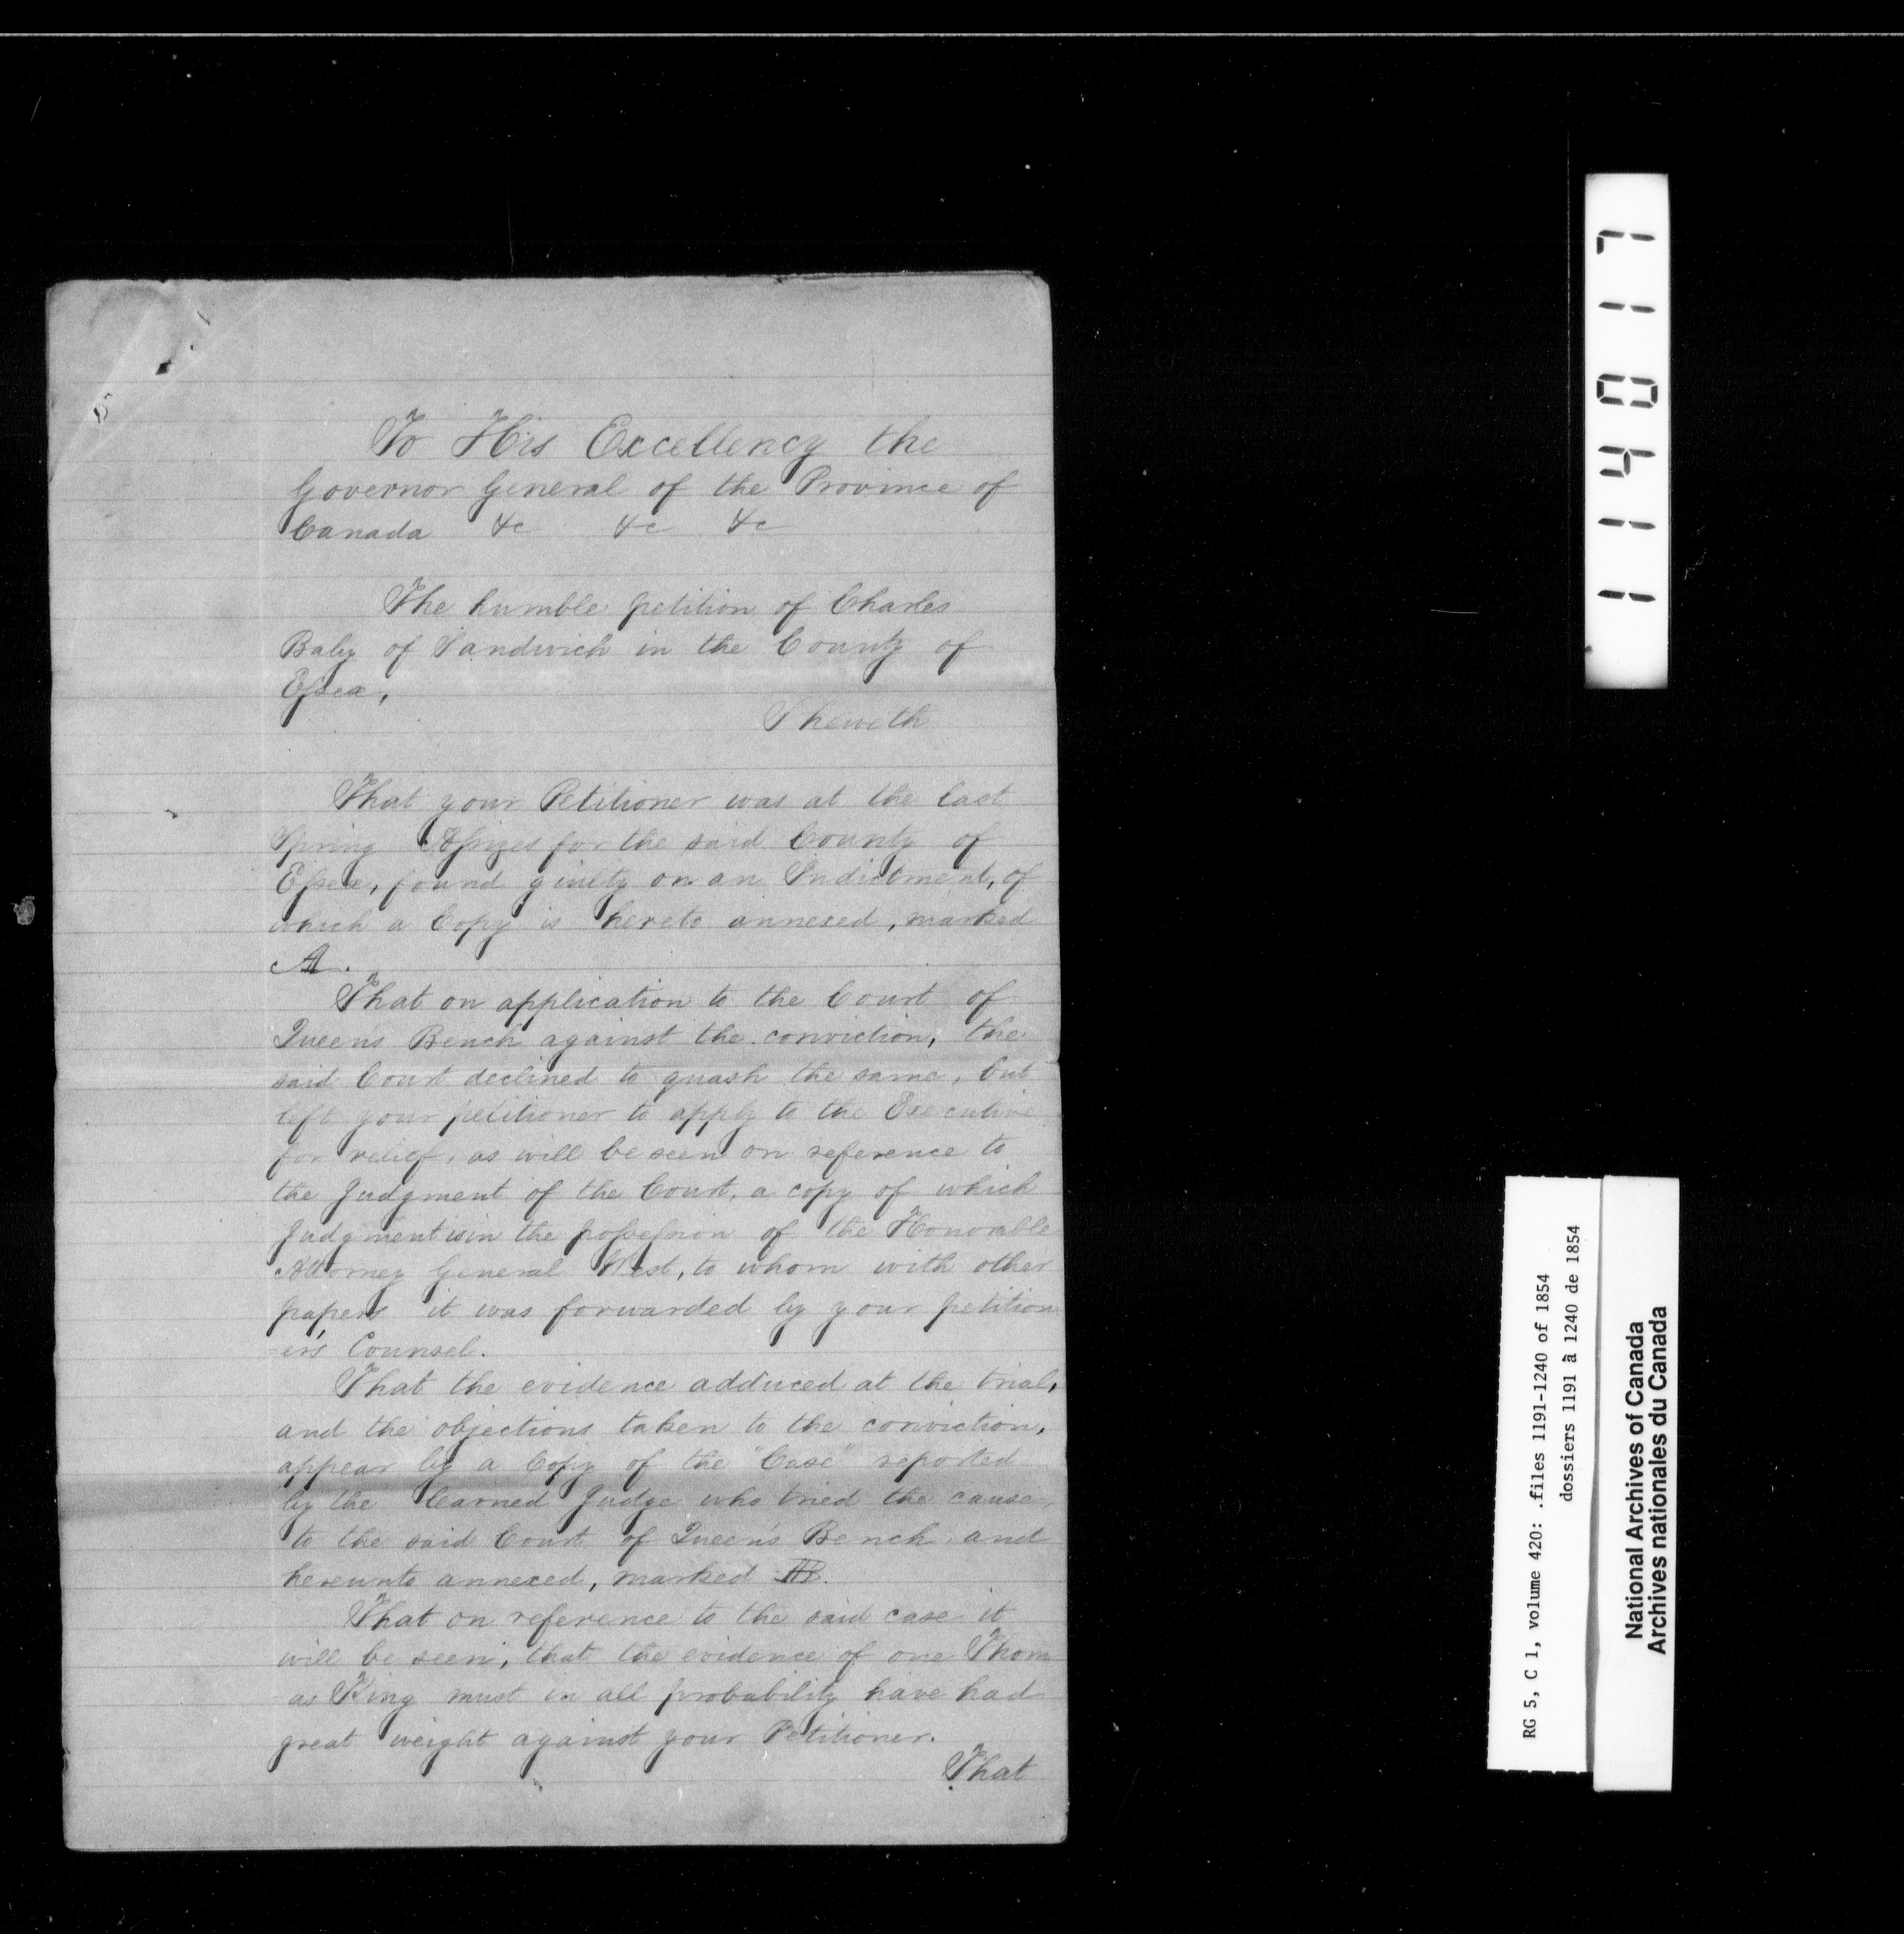 To His Excellency the
Governor General of the Province of
Canada &c &c &c
The humble petition of Charles
Baby of Sandwich in the County of
Essex,
Sheweth
That your Petitioner was at the last
Spring Assizes for the said County of
Essex, found guilty on an Indictment, of
which a Copy is hereto annexed, marked
A.
That on application to the Court of
Queen's Bench against the conviction, the
said Court declined to quash the same, but
left your petitioner to apply to the Executive
for relief, as will be seen on reference to
the Judgment of the Court, a copy of which
Judgment is in the possession of the Honorable
Attorney General West, to whom with other
papers it was forwarded by your petition
=er's Counsel.
That the evidence adduced at the trial,
and the objections taken to the conviction,
appear by a Copy of the "Case" reported
by the learned Judge who tried the cause,
to the said Court of Queen's Bench, and
hereunto annexed, marked B.
That on reference to the said case it
will be seen, that the evidence of one Thom
=as King must in all probability have had
great weight against your Petitioner.
That
114017
RG 5, C 1, volume 420: .files 1191-1240 of 1854
dossiers 1191 à 1240 de 1854
National Archives of Canada
Archives nationales du Canada